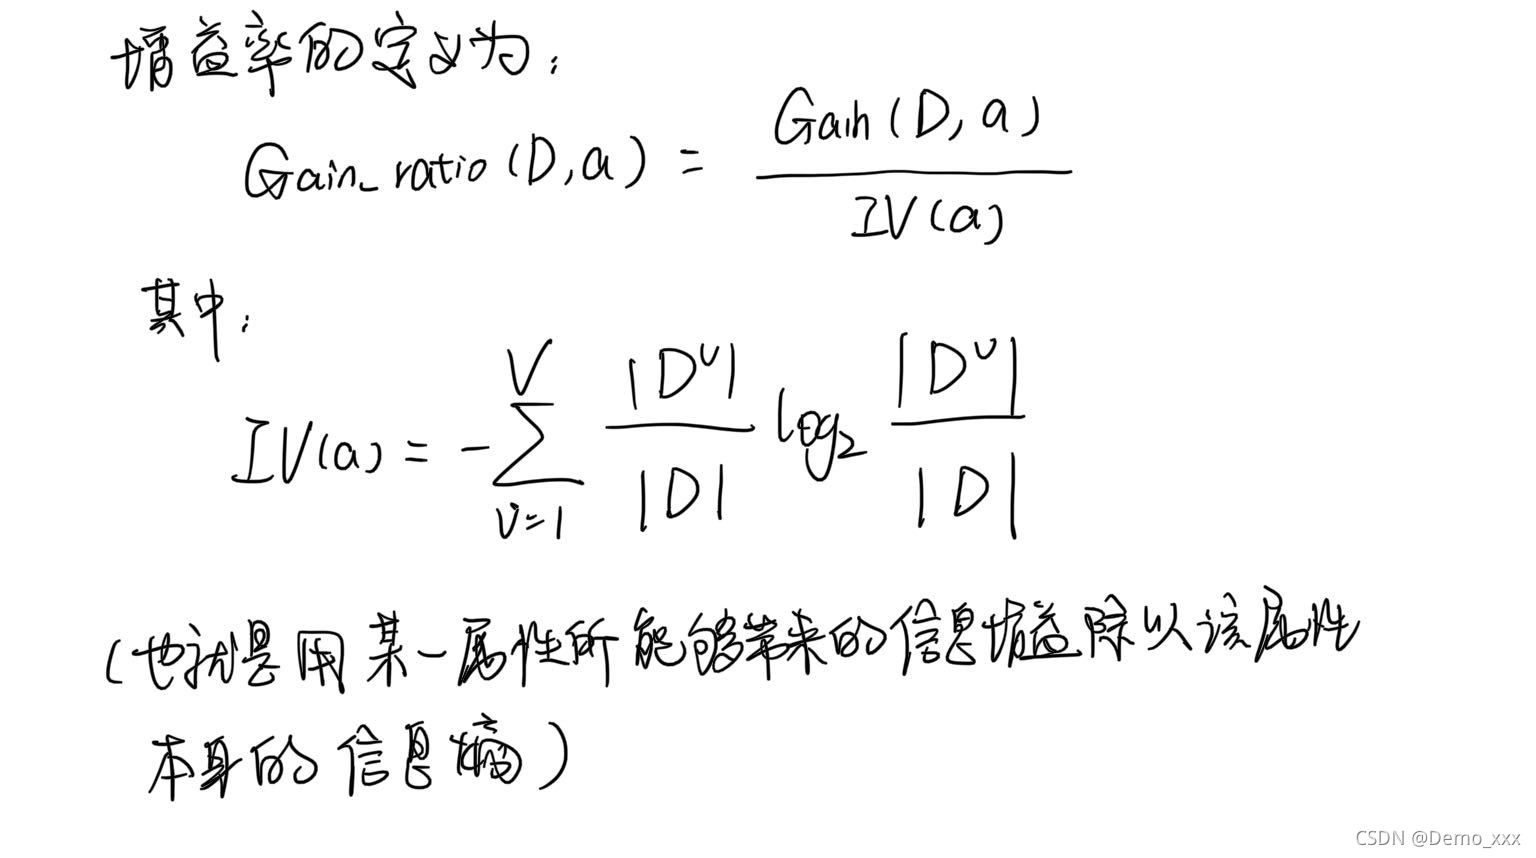 增益率的定义为:
Gain_ratio(D,a) = \frac{Gain(D,a)}{IV(a)}
其中:
IV(a) = -\sum_{v=1}^{V} \frac{|D^v|}{|D|} log_2 \frac{|D^v|}{|D|}
(也就是用某一属性所能够带来的信息增益除以该属性
本身的信息熵)
CSDN @Demo_xxx